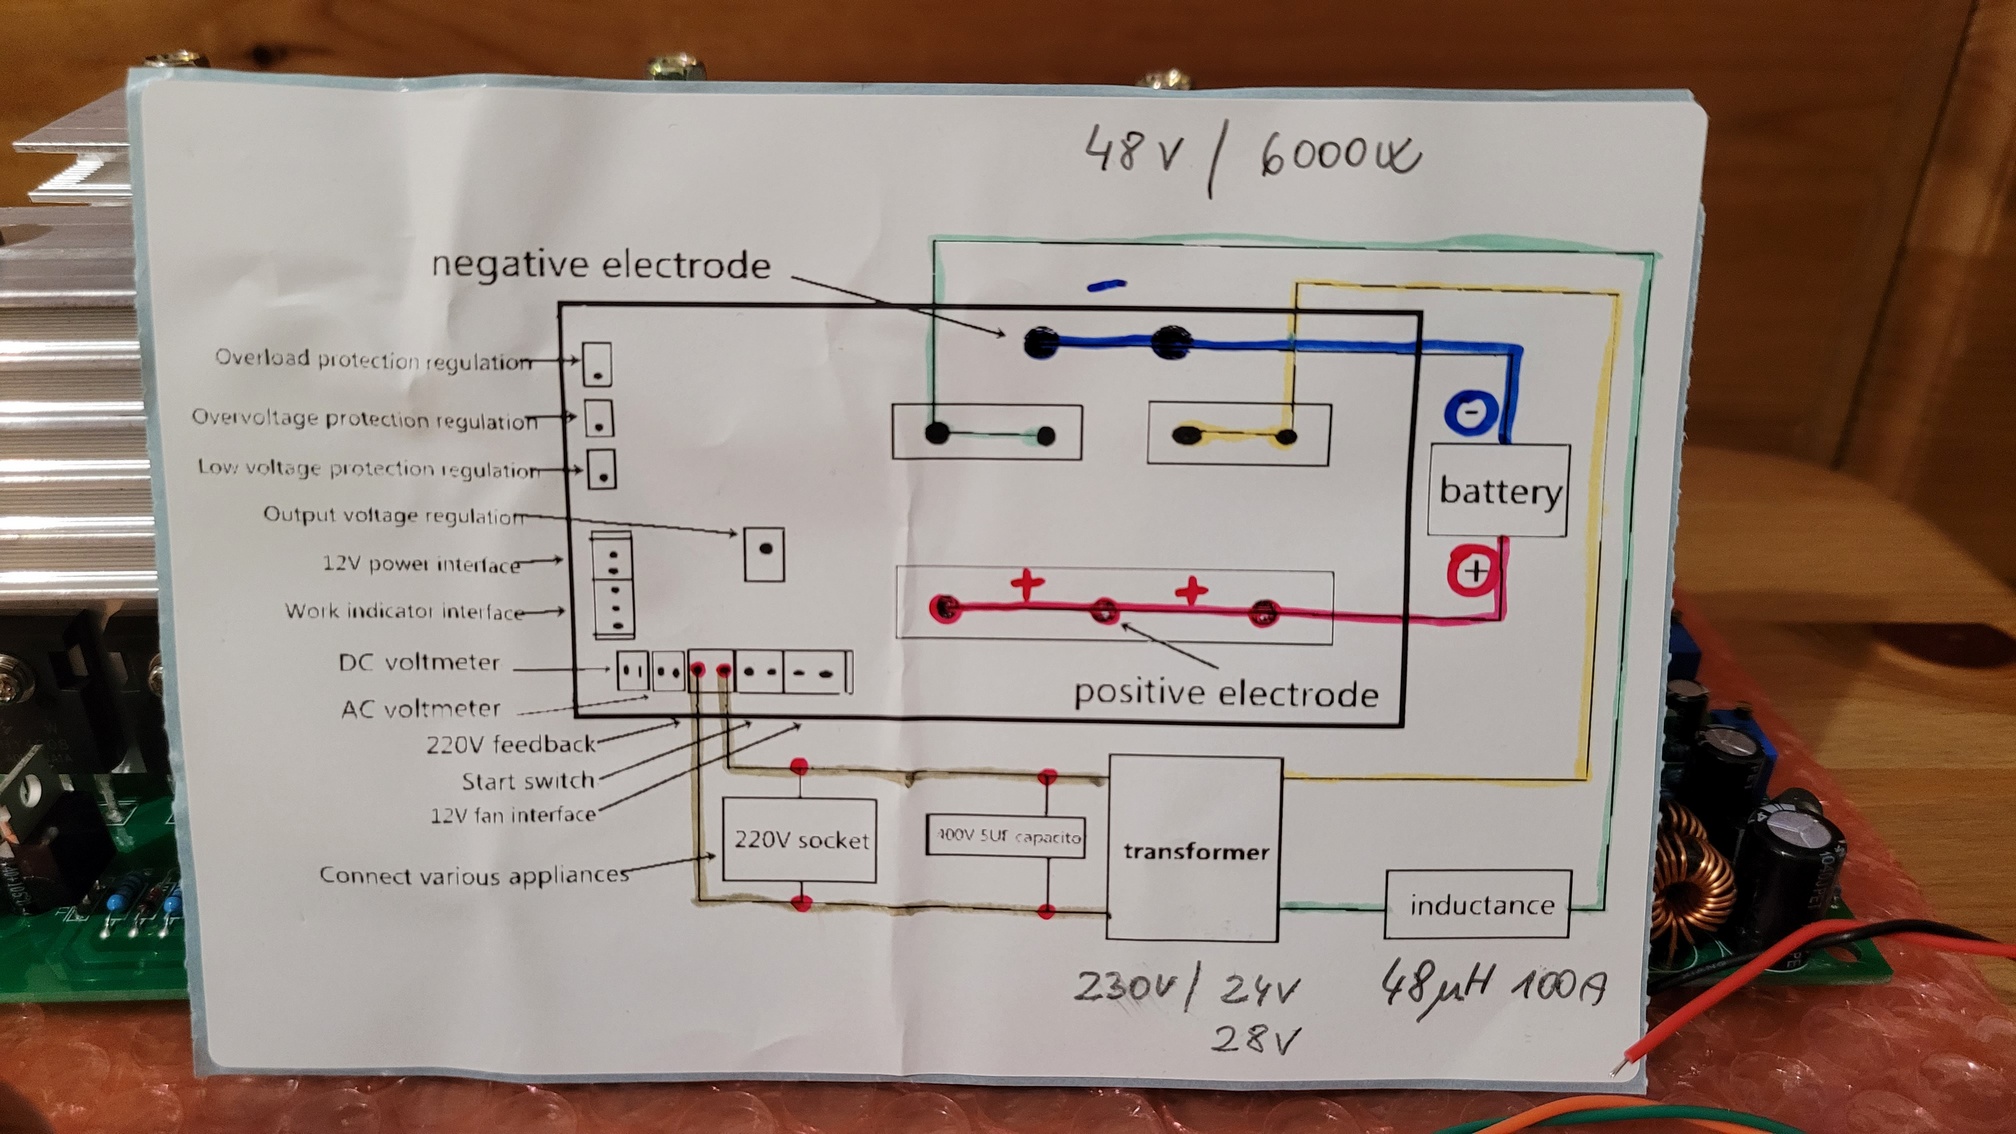 48V / 6000W
negative electrode
-
Overload protection regulation
Overvoltage protection regulation
Low voltage protection regulation
Output voltage regulation
12V power interface
Work indicator interface
DC voltmeter
AC voltmeter
220V feedback
Start switch
12V fan interface
Connect various appliances
-
battery
+
+ +
positive electrode
220V socket
400V 5Uf capacito
transformer
inductance
230V / 24V
28V
48µH 100A